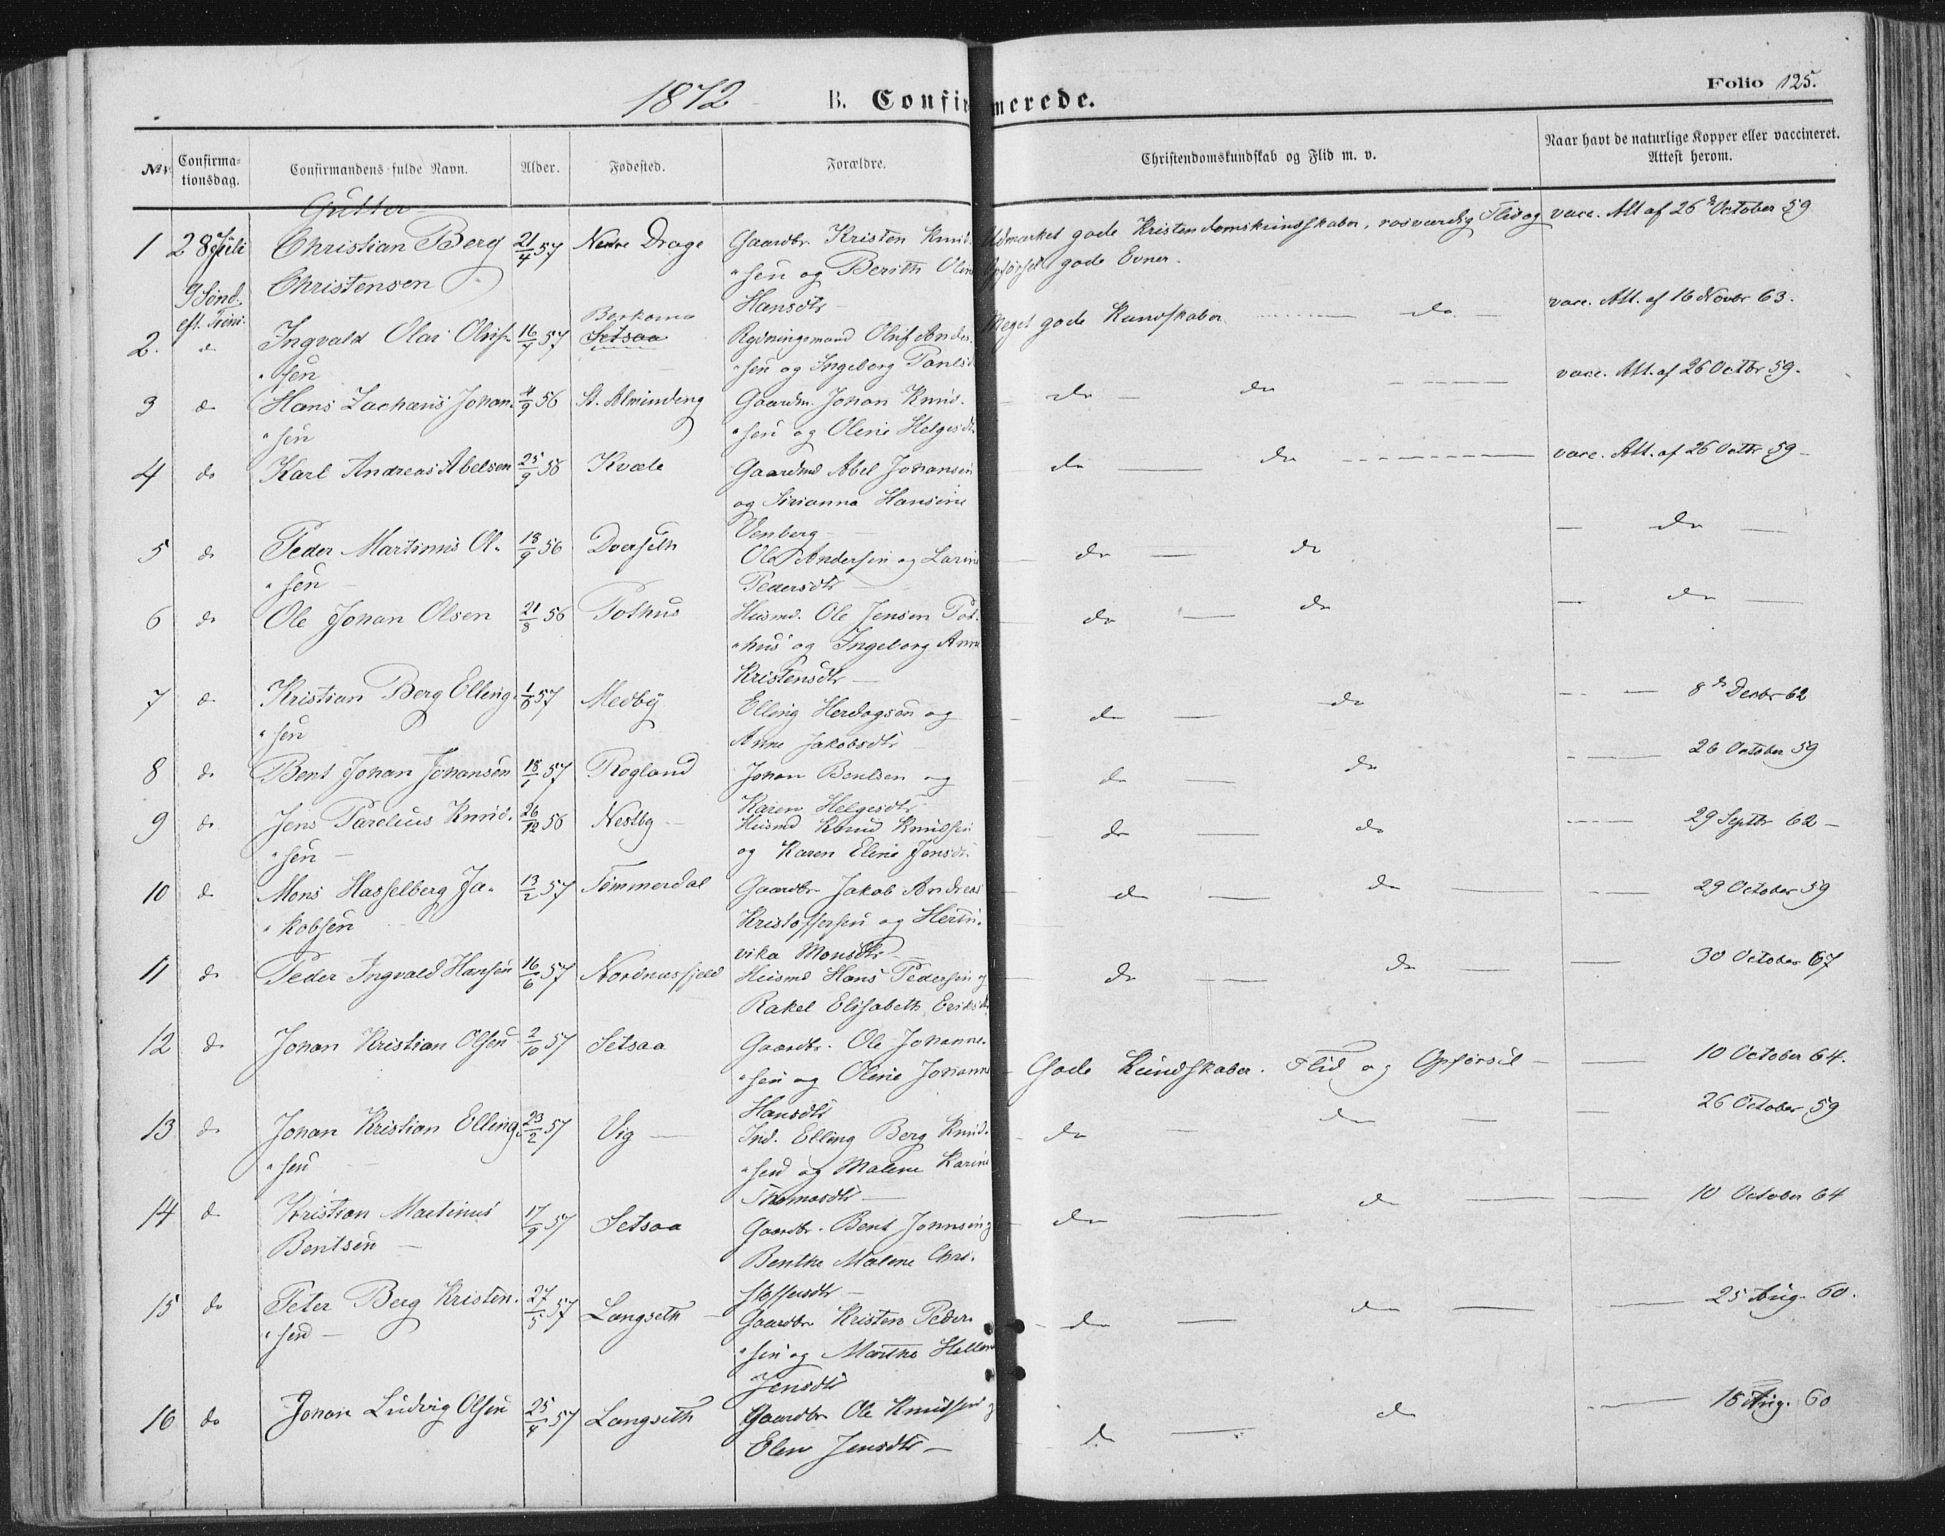 1872
B. Confirmerede.
Folio 125.
№
Confirmationsdag.
Confirmandens fulde Navn.
Alder.
Fødested.
Forældre.
Christendomskundskab og Flid m. v.
Naar havt de naturlige Kopper eller vaccineret. Attest herom.
Gutter
1 28 Juli Christian Berg 21/4 57 Nedre Drage Gaardbr Kristen Knud- Udmærket gode Kristendomskundskaber, rosværdig Flid og vacc. Att af 26de October 59
9 Sønd. Christensen "sen og Berith Oline Opførsel gode Evner.
eft. Trini. Hansdtr
2. d Ingvald Olai Olufs- 16/7 57 Setsaa Rydningsmand Oluf Anders- Meget gode Kundskaber do vacc. Att. af 16 Novbr 63.
"sen "sen og Ingeborg Paulsd
3 d Hans Zacharis Johan- 4/9 56 St. Alminding Gaardm. Johan Knud- do do vacc. Att. af 26 Octbr 59.
"sen "sen og Oline Helgesdt
4 do Karl Andreas Abelsen 25/9 56 Kvæle Gaardmd Abel Johansen do do vacc. Att. af 26 Octbr 59
og Sirianna Hansine
Venberg
5 d Peder Martinus Ol- 18/9 56 Dverseth Ole Andersen og Larine do do do
"sen Pedersdtr
6 d Ole Johan Olsen 21/8 56 Pothus Husmd. Ole Jensen Pot- do do do
"hus og Ingeborg Anna
Kristensdtr
7 d Kristian Berg Elling- 1/8 57 Medby Elling Herdagsen og do do 8de Decbr 62
"sen Anne Jakobsdtr
8 d Bent Johan Johansen 18/1 57 Rogland Johan Bentsen og do do 26 October 59
Karen Helgesdtr
9 d Jens Parelius Knud- 26/12 56 Nestby Husmd Knud Knudsen do do 29 Septbr 62
"sen og Karen Eline Jensdt.
10 d Mons Hasselberg Ja- 13/2 57 Tømmerdal Gaardbr Jakob Andreas do do 29 October 59
"kobsen Kristoffersen og Hert-
vika Monsdtr
11 d Peder Ingvald Hansen 16/6 57 Nordnæsfjeld Husmd Hans Pedersen og do do 30 October 67
Rakel Elisabeth Eriksdt
12 d Johan Kristian Olsen 2/10 57 Setsaa Gaardbr. Ole Johanne- Gode Kundskaber. Flid og Opførsel 10 October 64.
"sen og Oline Johanne
Hansdtr
13 d Johan Kristian Elling- 23/2 57 Vig Ind. Elling Berg Knud- do do 26 October 59
"sen "sen og Malene Karine
Thomasdtr
14 d Kristian Martinus 17/9 57 Setsaa Gaardbr. Bent Johnsen og do do 10 October 64
Bentsen Benthe Malene Chri-
stoffersdtr
15 do Peter Berg Kristen- 27/5 57 Langseth Gaardbr Kristen Peder- do do 25 Aug. 60.
"sen "sen og Marthe Hellene
Jensdtr
16 do Johan Ludvig Olsen 25/4 57 Langseth Gaardbr Ole Knudsen og do do 15 Aug. 60
Elen Jensdtr